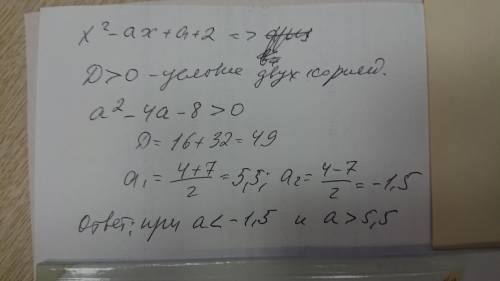 x² - ax + a + 2 =>
D > 0 - условие двух корней.
a² - 4a - 8 > 0
D = 16 + 32 = 49
a₁ = (4+7)/2 = 5,5; a₂ = (4-7)/2 = -1,5
Ответ: при a < -1,5 и a > 5,5